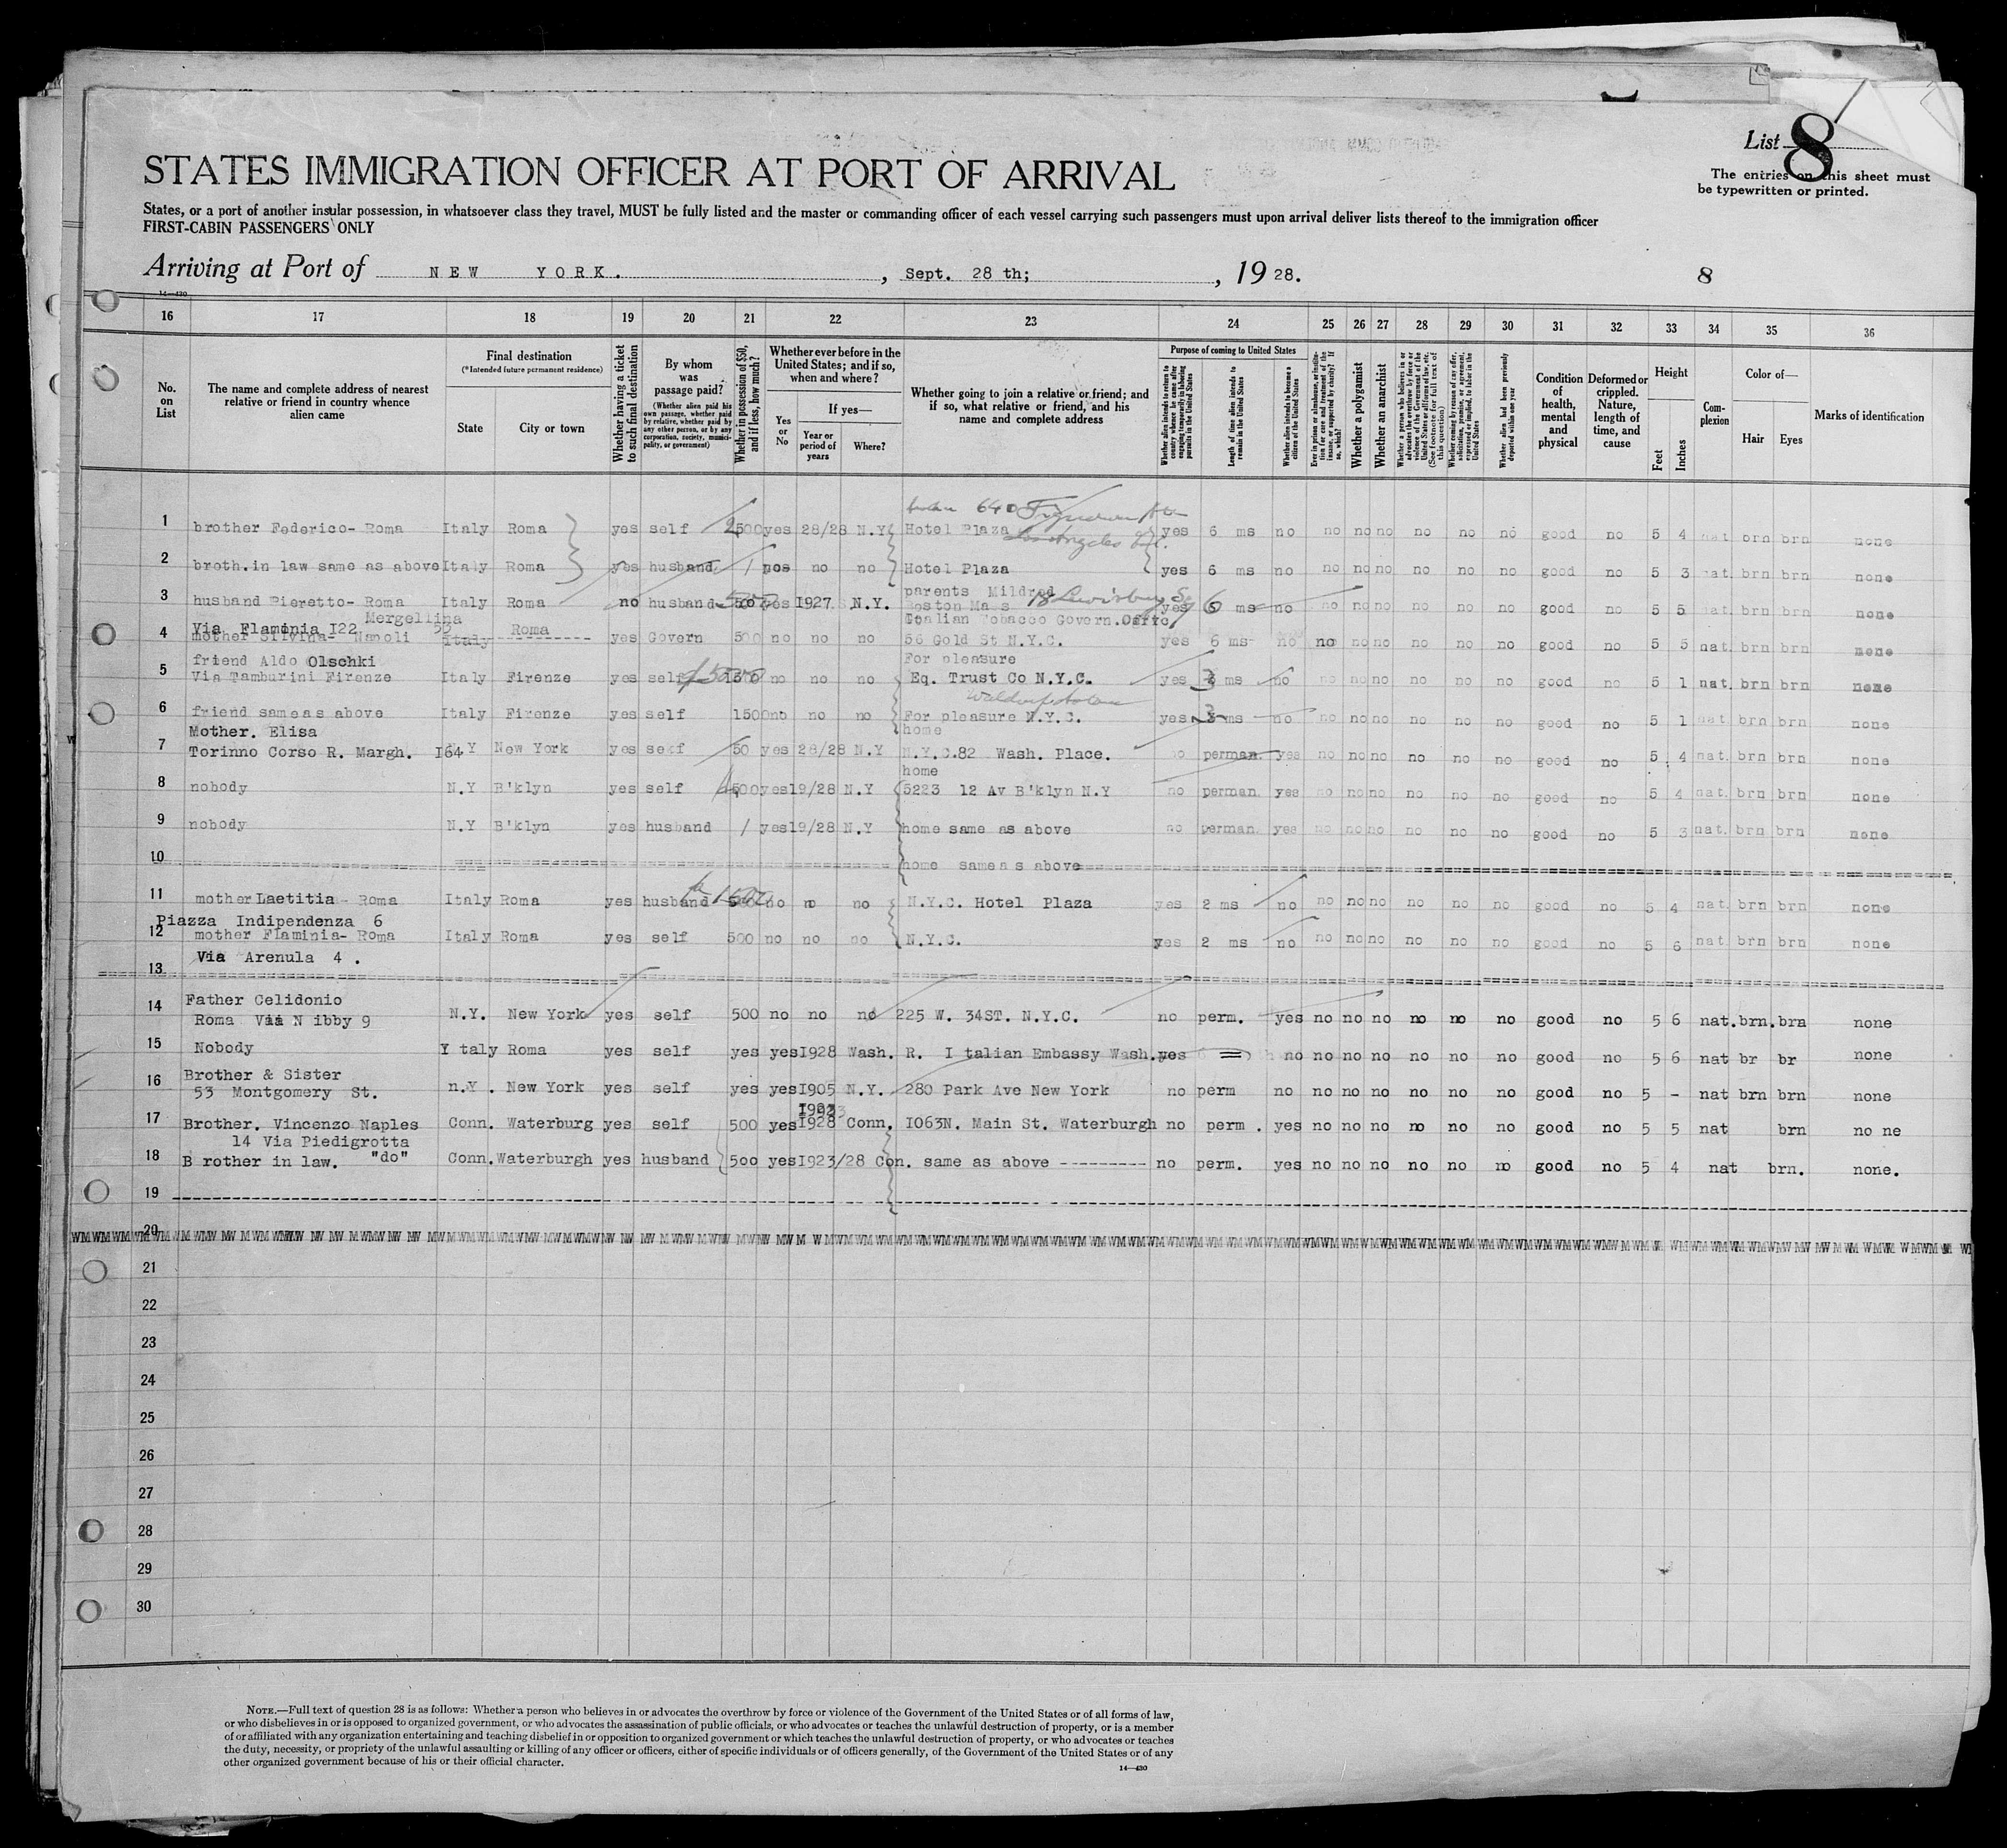 List 8
STATES IMMIGRATION OFFICER AT PORT OF ARRIVAL
The entries on this sheet must
be typewritten or printed.
States, or a port of another insular possession, in whatsoever class they travel, MUST be fully listed and the master or commanding officer of each vessel carrying such passengers must upon arrival deliver lists thereof to the immigration officer
FIRST-CABIN PASSENGERS ONLY
Arriving at Port of NEW YORK. , Sept. 28 th; , 19 28. 8
14—430
16 17 18 19 20 21 22 23 24 25 26 27 28 29 30 31 32 33 34 35 36
No. on List
The name and complete address of nearest relative or friend in country whence alien came
Final destination
(*Intended future permanent residence)
State
City or town
Whether having a ticket to such final destination
By whom was passage paid?
(Whether alien paid his own passage, whether paid by relative, whether paid by any other person, or by any corporation, society, municipality, or government)
Whether in possession of $50, and if less, how much?
Whether ever before in the United States; and if so, when and where?
Yes or No
If yes—
Year or period of years
Where?
Whether going to join a relative or friend; and if so, what relative or friend, and his name and complete address
Purpose of coming to United States
Whether alien intends to return to country whence he came after engaging temporarily in laboring pursuits in the United States
Length of time alien intends to remain in the United States
Whether alien intends to become a citizen of the United States
Ever in prison or almshouse, or institution for care and treatment of the insane, or supported by charity? If so, which?
Whether a polygamist
Whether an anarchist
Whether a person who believes in or advocates the overthrow by force or violence of the Government of the United States or all forms of law, etc. (See footnote for full text of this question)
Whether coming by reason of any offer, solicitation, promise, or agreement, expressed or implied, to labor in the United States
Whether alien had been previously deported within one year
Condition of health, mental and physical
Deformed or crippled. Nature, length of time, and cause
Height
Feet
Inches
Complexion
Color of—
Hair
Eyes
Marks of identification
640
1 brother Federico- Roma Italy Roma yes self 2500 yes 28/28 N.Y Hotel Plaza Los Angeles yes 6 ms no no no no no no no good no 5 4 nat brn brn none
2 broth.in law same as above Italy Roma yes husband / no no Hotel Plaza yes 6 ms no no no no no no no good no 5 3 nat. brn brn none
parents Mildred
3 husband Pieretto- Roma Italy Roma no husband 500 yes 1927 N.Y. Boston Mass 18 yes 6 ms no no no no no no no good no 5 5 nat. brn brn none
Mergellina
Via Flaminia I22 55 Roma Italian Tobacco Govern.Offic
4 mother Silvina- Napoli Italy ---------- yes Govern 500 no no no 56 Gold St N.Y.C. yes 6 ms no no no no no no no good no 5 5 nat. brn brn none
friend Aldo Olschki For pleasure
5 Via Tamburini Firenze Italy Firenze yes self no no no Eq. Trust Co N.Y.C. yes ms no no no no no no no good no 5 1 nat. brn brn none
6 friend sameas above Italy Firenze yes self 1500 no no no For pleasure N.Y.C. yes 3 ms no no no no no no no good no 5 1 nat brn brn none
Mother. Elisa home
7 Torinno Corso R. Margh. I64 Y New York yes self 50 yes 28/28 N.Y N.Y.C.82 Wash. Place. no perman. yes no no no no no no good no 5 4 nat. brn brn none
home
8 nobody N.Y B'klyn yes self 500 yes 19/28 N.Y 5223 12 Av B'klyn N.Y no perman. yes no no no no no no good no 5 4 nat. brn brn none
9 nobody N.Y B'klyn yes husband / yes 19/28 N.Y home same as above no perman. yes no no no no no no good no 5 3 nat. brn brn none
10 home sameas above
11 mother Laetitia - Roma Italy Roma yes husband no no no N.Y.C. Hotel Plaza yes 2 ms no no no no no no no good no 5 4 nat. brn brn none
Piazza Indipendenza 6
12 mother Flaminia- Roma Italy Roma yes self 500 no no no N.Y.C. yes 2 ms no no no no no no no good no 5 6 nat brn brn none
Via Arenula 4 .
13
Father Celidonio
14 Roma Via N ibby 9 N.Y. New York yes self 500 no no no 225 W. 34ST. N.Y.C. no perm. yes no no no no no no good no 5 6 nat. brn. brn none
15 Nobody Y taly Roma yes self yes yes I928 Wash. R. I talian Embassy Wash. yes = no no no no no no no good no 5 6 nat br br none
Brother & Sister
16 53 Montgomery St. n.Y . New York yes self yes yes I905 N.Y. 280 Park Ave New York no perm no no no no no no no good no 5 - nat brn brn none
17 Brother. Vincenzo Naples Conn. Waterburg yes self 500 yes I928 Conn. I063N. Main St. Waterburgh no perm . yes no no no no no no good no 5 5 nat brn no ne
14 Via Piedigrotta
18 B rother in law. "do" Conn. Waterburgh yes husband 500 yes I923/28 Con. same as above --------- no perm. yes no no no no no no good no 5 4 nat brn. none.
19
20
21
22
23
24
25
26
27
28
29
30
NOTE.—Full text of question 28 is as follows: Whether a person who believes in or advocates the overthrow by force or violence of the Government of the United States or of all forms of law,
or who disbelieves in or is opposed to organized government, or who advocates the assassination of public officials, or who advocates or teaches the unlawful destruction of property, or is a member
of or affiliated with any organization entertaining and teaching disbelief in or opposition to organized government or which teaches the unlawful destruction of property, or who advocates or teaches
the duty, necessity, or propriety of the unlawful assaulting or killing of any officer or officers, either of specific individuals or of officers generally, of the Government of the United States or of any
other organized government because of his or their official character.
14—430